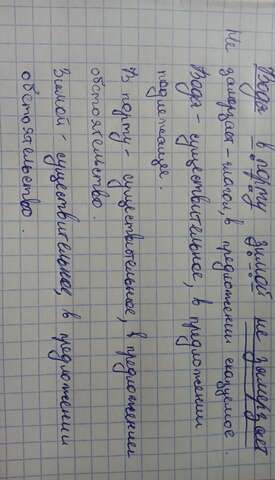 Вода в порту зимой не замерзает
Не замерзает - глагол, в предложении сказуемое.
Вода - существительное, в предложении
подлежащее.
В порту - существительное, в предложении
обстоятельство.
Зимой - существительное, в предложении
обстоятельство.